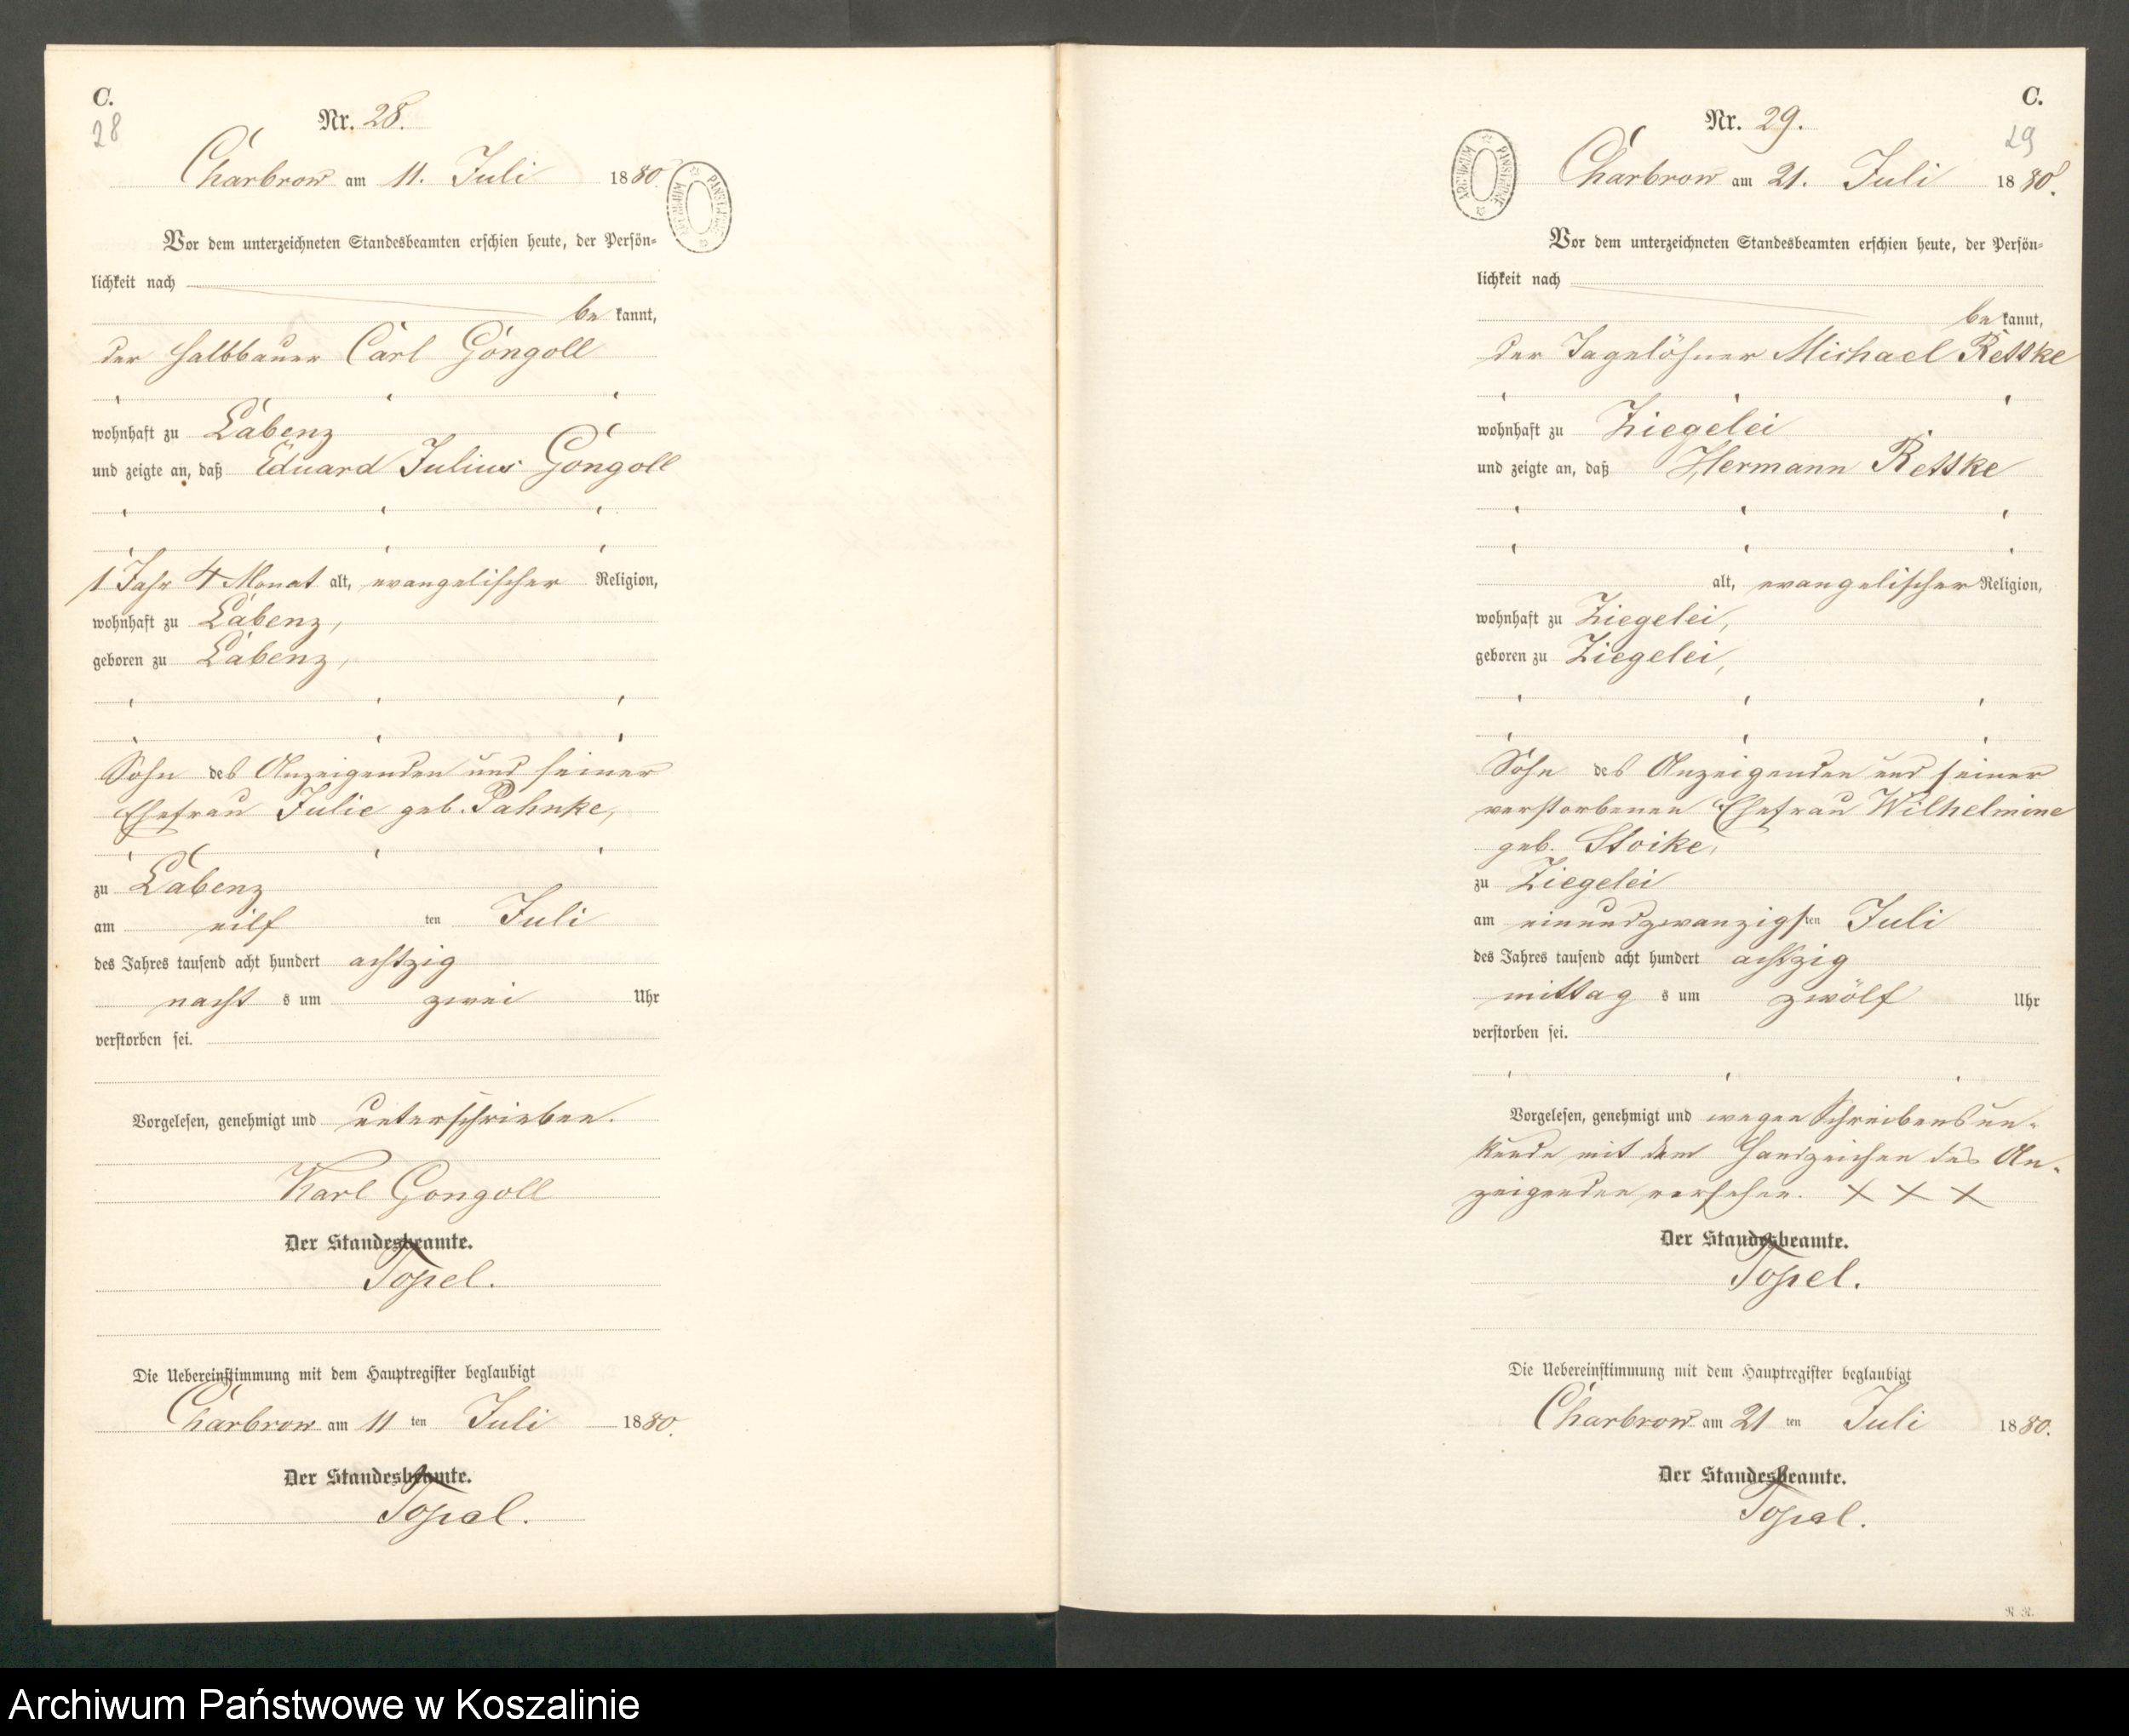 C.
28
Nr. 28.
Charbrow am 11. Juli 1880.
ARCHIWUM PAŃSTWOWE
Vor dem unterzeichneten Standesbeamten erschien heute, der Persön-
lichkeit nach
be kannt,
der Halbbauer Carl Gongoll
wohnhaft zu Labenz
und zeigte an, daß Eduard Julius Gongoll
1 Jahr 4 Monat alt, evangelischer Religion,
wohnhaft zu Labenz,
geboren zu Labenz,
Sohn des Anzeigenden und seiner
Ehefrau Julie geb. Pahnke,
zu Labenz
am eilf ten Juli
des Jahres tausend acht hundert achtzig
nacht s um zwei Uhr
verstorben sei.
Vorgelesen, genehmigt und unterschrieben.
Karl Gongoll
Der Standesbeamte.
Topel.
Die Uebereinstimmung mit dem Hauptregister beglaubigt
Charbrow am 11 ten Juli 1880.
Der Standesbeamte.
Topel.
C.
29
Nr. 29.
Charbrow am 21. Juli 1880.
ARCHIWUM PAŃSTWOWE
Vor dem unterzeichneten Standesbeamten erschien heute, der Persön-
lichkeit nach
be kannt,
der Tagelöhner Michael Rettke
wohnhaft zu Ziegelei
und zeigte an, daß Hermann Rettke
alt, evangelischer Religion,
wohnhaft zu Ziegelei,
geboren zu Ziegelei,
Sohn des Anzeigenden und seiner
verstorbenen Ehefrau Wilhelmine
geb. Stoike,
zu Ziegelei
am einundzwanzigsten Juli
des Jahres tausend acht hundert achtzig
mittag s um zwölf Uhr
verstorben sei.
Vorgelesen, genehmigt und wegen Schreibensun-
kunde mit dem Handzeichen des An-
zeigenden versehen. X X X
Der Standesbeamte.
Topel.
Die Uebereinstimmung mit dem Hauptregister beglaubigt
Charbrow am 21 ten Juli 1880.
Der Standesbeamte.
Topel.
Archiwum Państwowe w Koszalinie